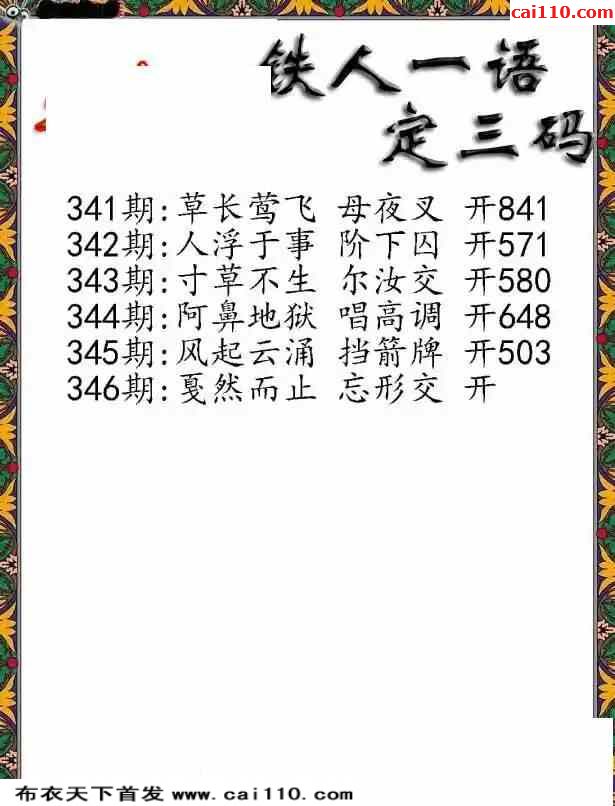 彩吧
cai110.com
铁人一语
定三码
341期:草长莺飞 母夜叉 开841
342期:人浮于事 阶下囚 开571
343期:寸草不生 尔汝交 开580
344期:阿鼻地狱 唱高调 开648
345期:风起云涌 挡箭牌 开503
346期:戛然而止 忘形交 开
布衣天下首发 www.cai110.com